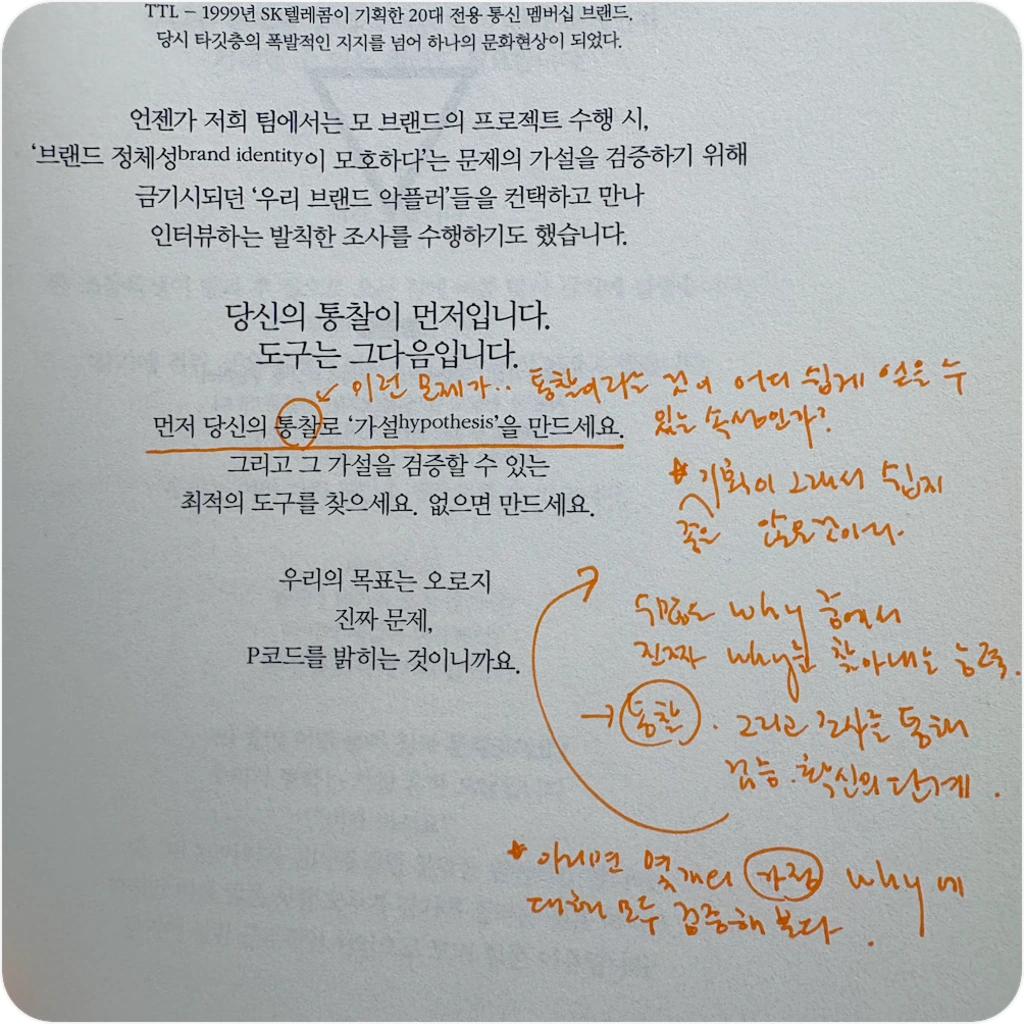 TTL – 1999년 SK텔레콤이 기획한 20대 전용 통신 멤버십 브랜드.
당시 타깃층의 폭발적인 지지를 넘어 하나의 문화현상이 되었다.
언젠가 저희 팀에서는 모 브랜드의 프로젝트 수행 시,
‘브랜드 정체성brand identity이 모호하다’는 문제의 가설을 검증하기 위해
금기시되던 ‘우리 브랜드 악플러’들을 컨택하고 만나
인터뷰하는 발칙한 조사를 수행하기도 했습니다.
당신의 통찰이 먼저입니다.
도구는 그다음입니다.
이런 문제가.. 통찰이라는 것이 어디 쉽게 얻을 수
있는 속성인가?
먼저 당신의 통찰로 ‘가설hypothesis’을 만드세요.
그리고 그 가설을 검증할 수 있는
최적의 도구를 찾으세요. 없으면 만드세요.
기획이 그래서 쉽지
좋은 않은 것이다.
우리의 목표는 오로지
진짜 문제,
P코드를 밝히는 것이니까요.
수많은 why 중에서
진짜 why를 찾아내는 능력.
→ 통찰. 그리고 조사를 통해
검증. 확신의 단계.
아니면 몇개의 가정 why에
대해 모두 검증해 본다.